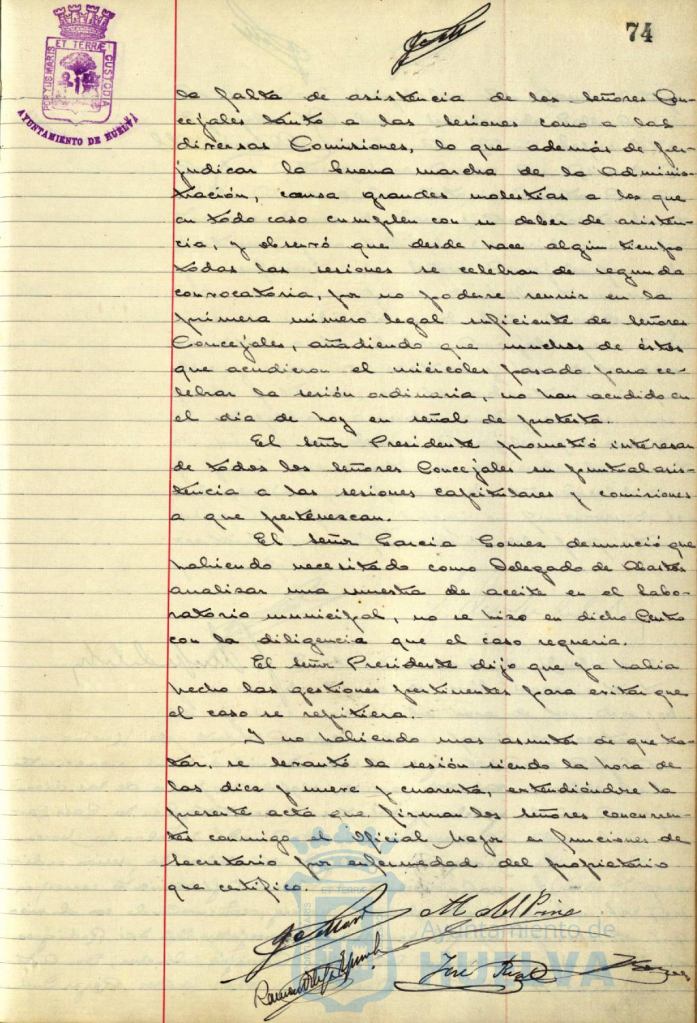 74
PORTUS MARIS ET TERRÆ CUSTODIA
AYUNTAMIENTO DE HUELVA
la falta de asistencia de los señores Con-
cejales tanto a las sesiones como a las
diversas Comisiones, lo que además de per-
judicar la buena marcha de la Adminis-
tración, causa grandes molestias a los que
en todo caso cumplen con su deber de asisten-
cia, y observó que desde hace algún tiempo
todas las sesiones se celebran de segunda
convocatoria, por no poderse reunir en la
primera número legal suficiente de señores
Concejales, añadiendo que muchos de éstos
que acudieron el miércoles pasado para ce-
lebrar la sesión ordinaria, no han acudido en
el día de hoy en señal de protesta.
El señor Presidente prometió interesar
de todos los señores Concejales su puntual asis-
tencia a las sesiones capitulares y comisiones
a que pertenescan.
El señor Garcia Gomez denunció que
habiendo necesitado como Delegado de Abastos
analisar una muestra de aceite en el labo-
ratorio municipal, no se hizo en dicho Centro
con la diligencia que el caso requeria.
El señor Presidente dijo que ya habia
hecho las gestiones pertinentes para evitar que
el caso se repitiera.
Y no habiendo mas asuntos de que tra-
tar, se levantó la sesión siendo la hora de
las diez y nueve y cuarenta, extendiéndose la
presente acta que firman los señores concurren-
tes conmigo el Oficial Mayor en funciones de
Secretario por enfermedad del propietario
que certifico.
M. del Pino
José
Ayuntamiento de
HUELVA